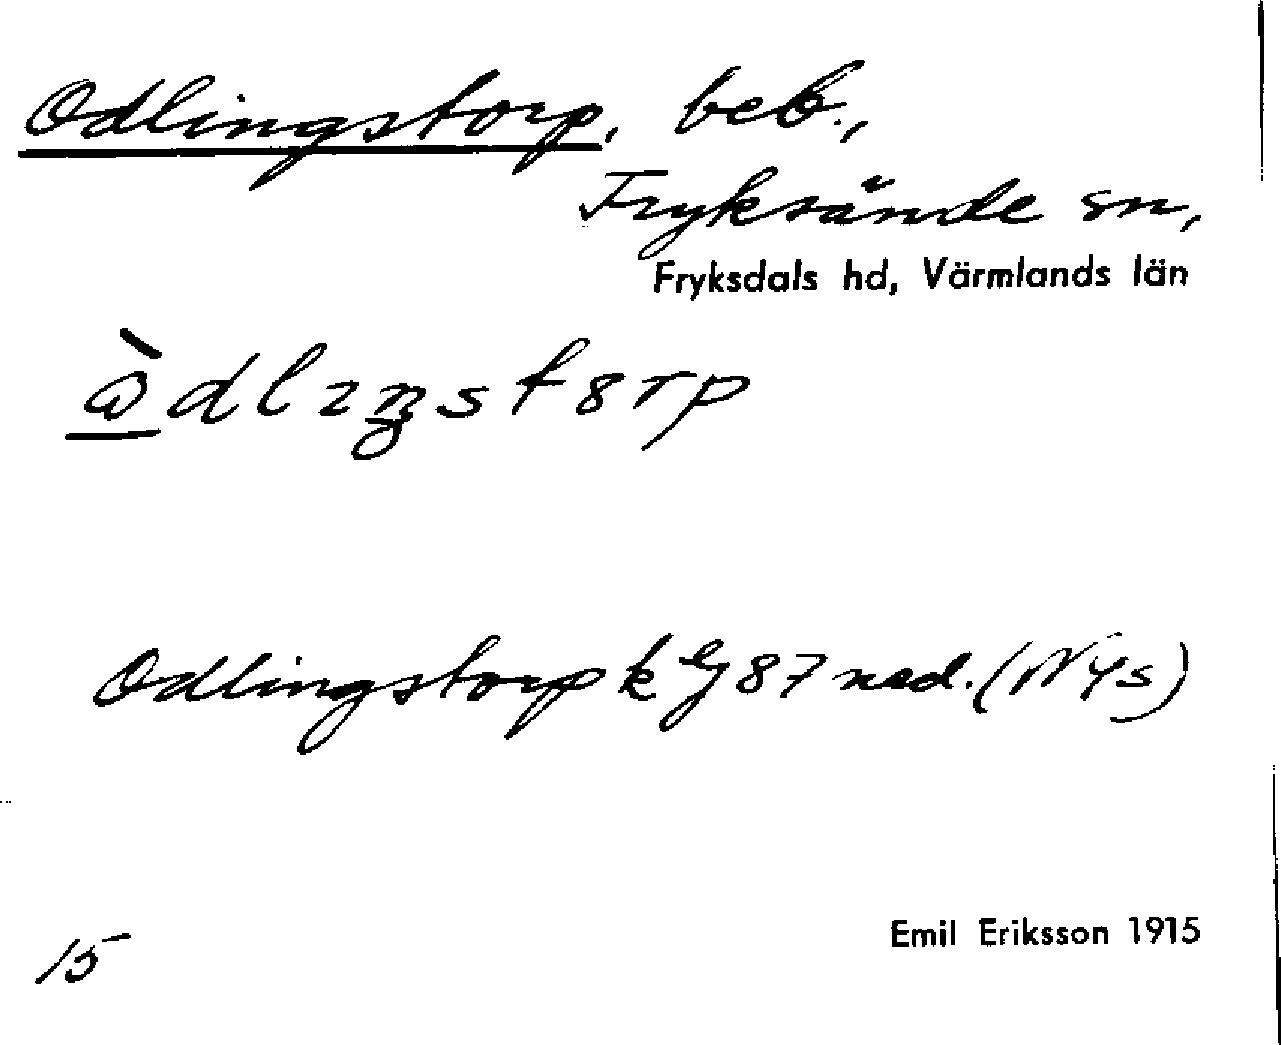 Odlingstorp, beb.,
Fryksände sn,
Fryksdals hd, Värmlands län
Odlingstorp k G 87 ned. (NYs)
15
Emil Eriksson 1915